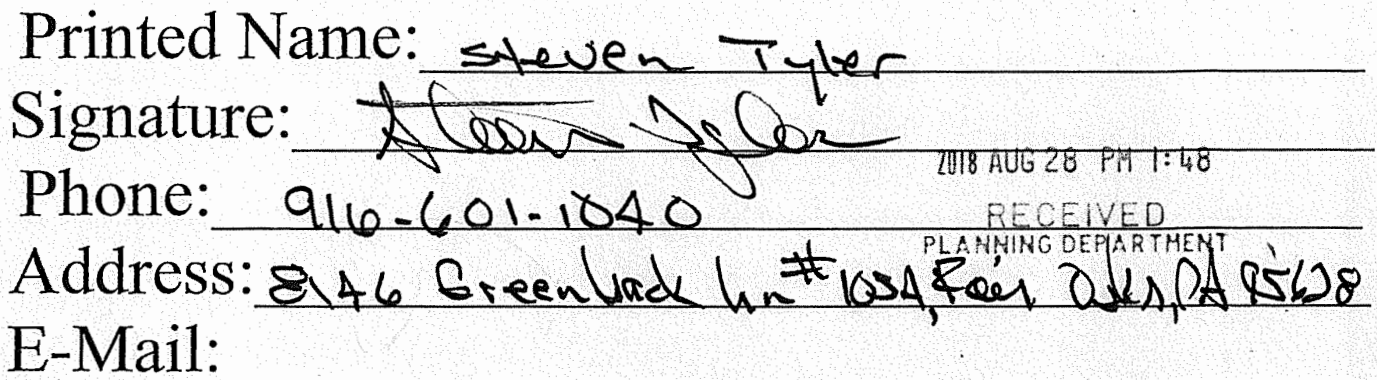 Printed Name: Steven Tyler
Signature: Steven Tyler
2018 AUG 28 PM 1:48
Phone: 916-601-1040
RECEIVED
PLANNING DEPARTMENT
Address: 8146 Greenback Ln # 103A, Fair Oaks, CA 95628
E-Mail: